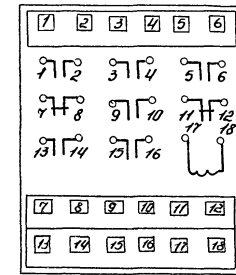 1 2 3 4 5 6
1 2 3 4 5 6
7 8 9 10 11 12
17 18
13 14 15 16
7 8 9 10 11 12
13 14 15 16 17 18